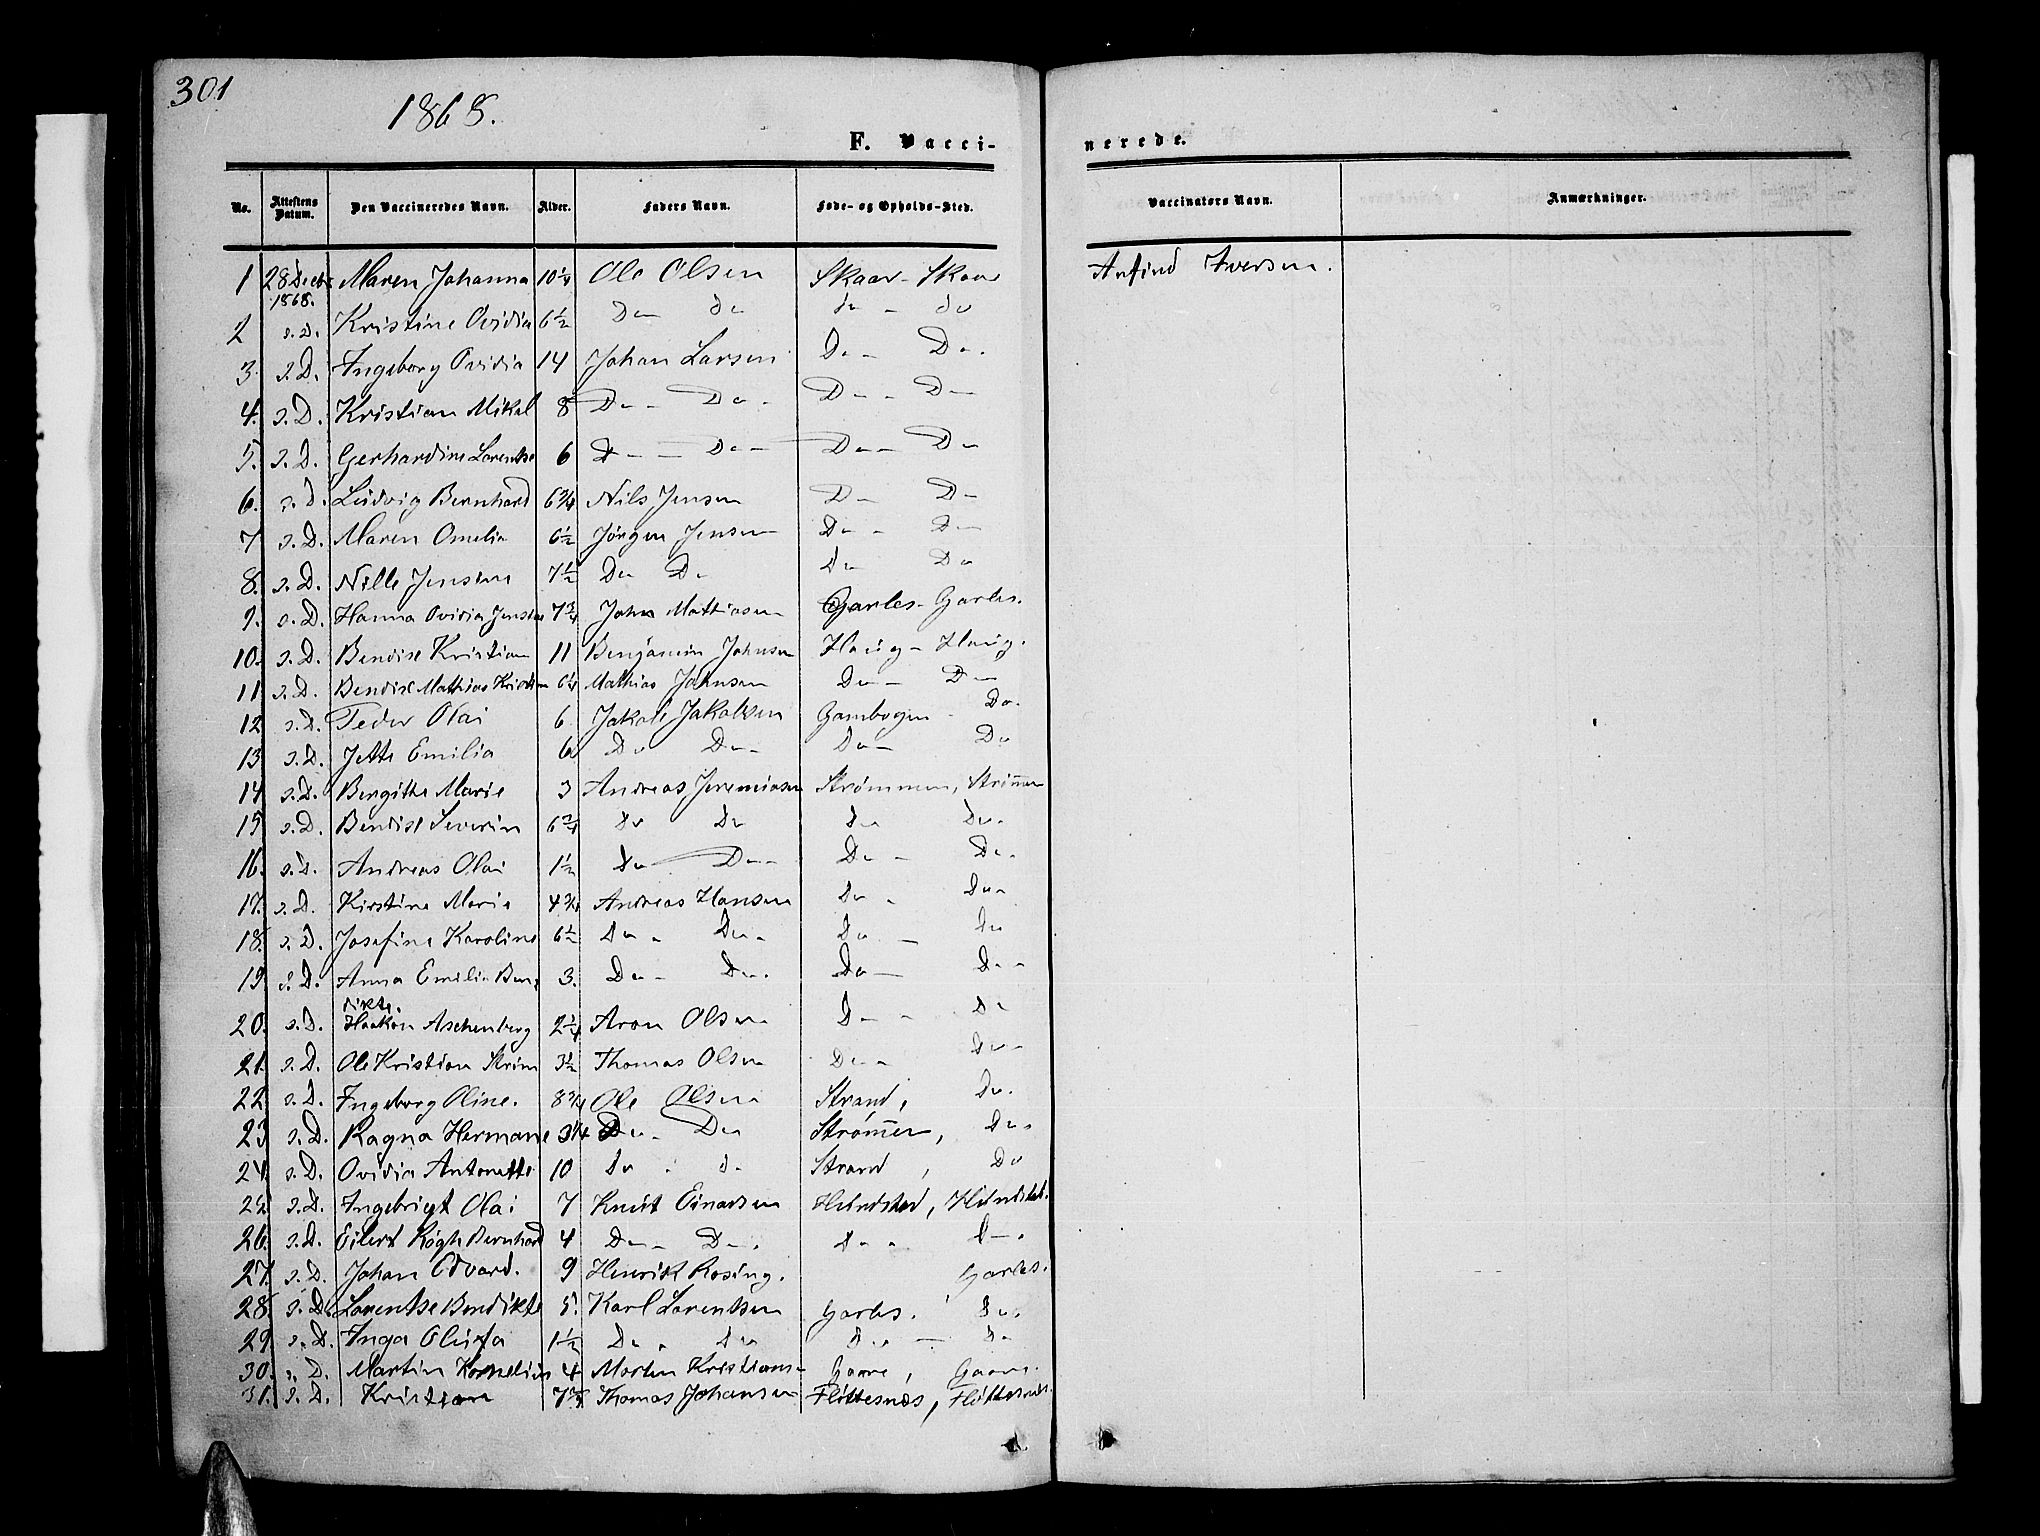 301
1868.
F. Vacci-
nerede.
No. Attestens Datum. Den Vaccineredes Navn. Alder. Faders Navn. Føde- og Opholds-Sted. Vaccinators Navn. Anmærkninger.
1 28 Decbr 1868. Maren Johanna 10 1/4 Ole Olsen Skaar - Skaar Anfind Iversen.
2 s. D. Kristine Ovidia 6 1/2 Do do do - do
3. s. D. Ingeborg Ovidia 14 Johan Larsen Do - Do.
4. s. D. Kristian Mikal 8 Do - Do - Do - Do
5. s. D. Gerhardine Lorentse 6 Do - Do - Do - Do
6. s. D. Ludvig Bernhard 6 3/4 Nils Jensen Do - Do -
7 s. D. Maren Omelia 6 1/2 Jörgen Jensen Do - Do
8. s. D. Nille Jensine 7 1/2 Do Do Do Do
9. s. D. Hanna Ovidia Jensine 7 3/4 John Mathiasen Garles - Garles.
10. s. D. Bendix Kristian 11 Benjamin Johnsen Haug - Haug.
11. s. D. Bendix Mathias Kristian 6 1/4 Mathias Johnsen Do - Do
12 s. D. Peder Olai 6 Jakob Jakobsen Gambogen - Do.
13 s. D. Jette Emilia 6 Do Do - Do - Do
14 s. D. Bergithe Marie 3 Andreas Jeremiasen Strømmen, Strømen
15 s. D. Bendix Severin 6 3/4 do Do do Do.
16. s. D. Andreas Olai 1 1/2 do Do - Do - Do.
17. s. D. Kirstine Marie 4 3/4 Andreas Hansen do - do -
18. s. D. Josefine Karoline 6 1/2 Do - Do - Do - do
19. s. D. Anna Emilie Ben- 3. Do - Do. Do - Do -
dikte.
20. s. D. Haakon Aschenberg 2 1/4 Aron Olsen Do - do
21. s. D. Ole Kristian Strøm 3 1/2 Thomas Olsen Do - do -
22 s. D. Ingeborg Oline. 8 3/4 Ole Olsen Strand, do.
23 s. D. Ragna Hermane 3 1/4 Do - Do Strømen, do.
24 s. D. Ovidia Antonette 10 do - do Strand, Do
25 s. D. Ingebrigt Olai 7 Knut Einarsen Hundstad, Hundstad.
26. s. D. Eilert Kögh Bernhard 4 Do - Do. do - do.
27. s. D. Johan Edvard. 9 Henrik Rosing. Garles.
28. s. D. Lorentse Bendikte 5. Karl Lorentsen Garles. do.
29 s. D. Inga Olufa 1 1/2 Do. do do - do
30. s. D. Martin Kornelius 4 Morten Kristians- Gaare, Gaare.
31. s. D. Kristian 7 3/4 Thomas Johansen Flöttesnæs, Flöttesnæs.